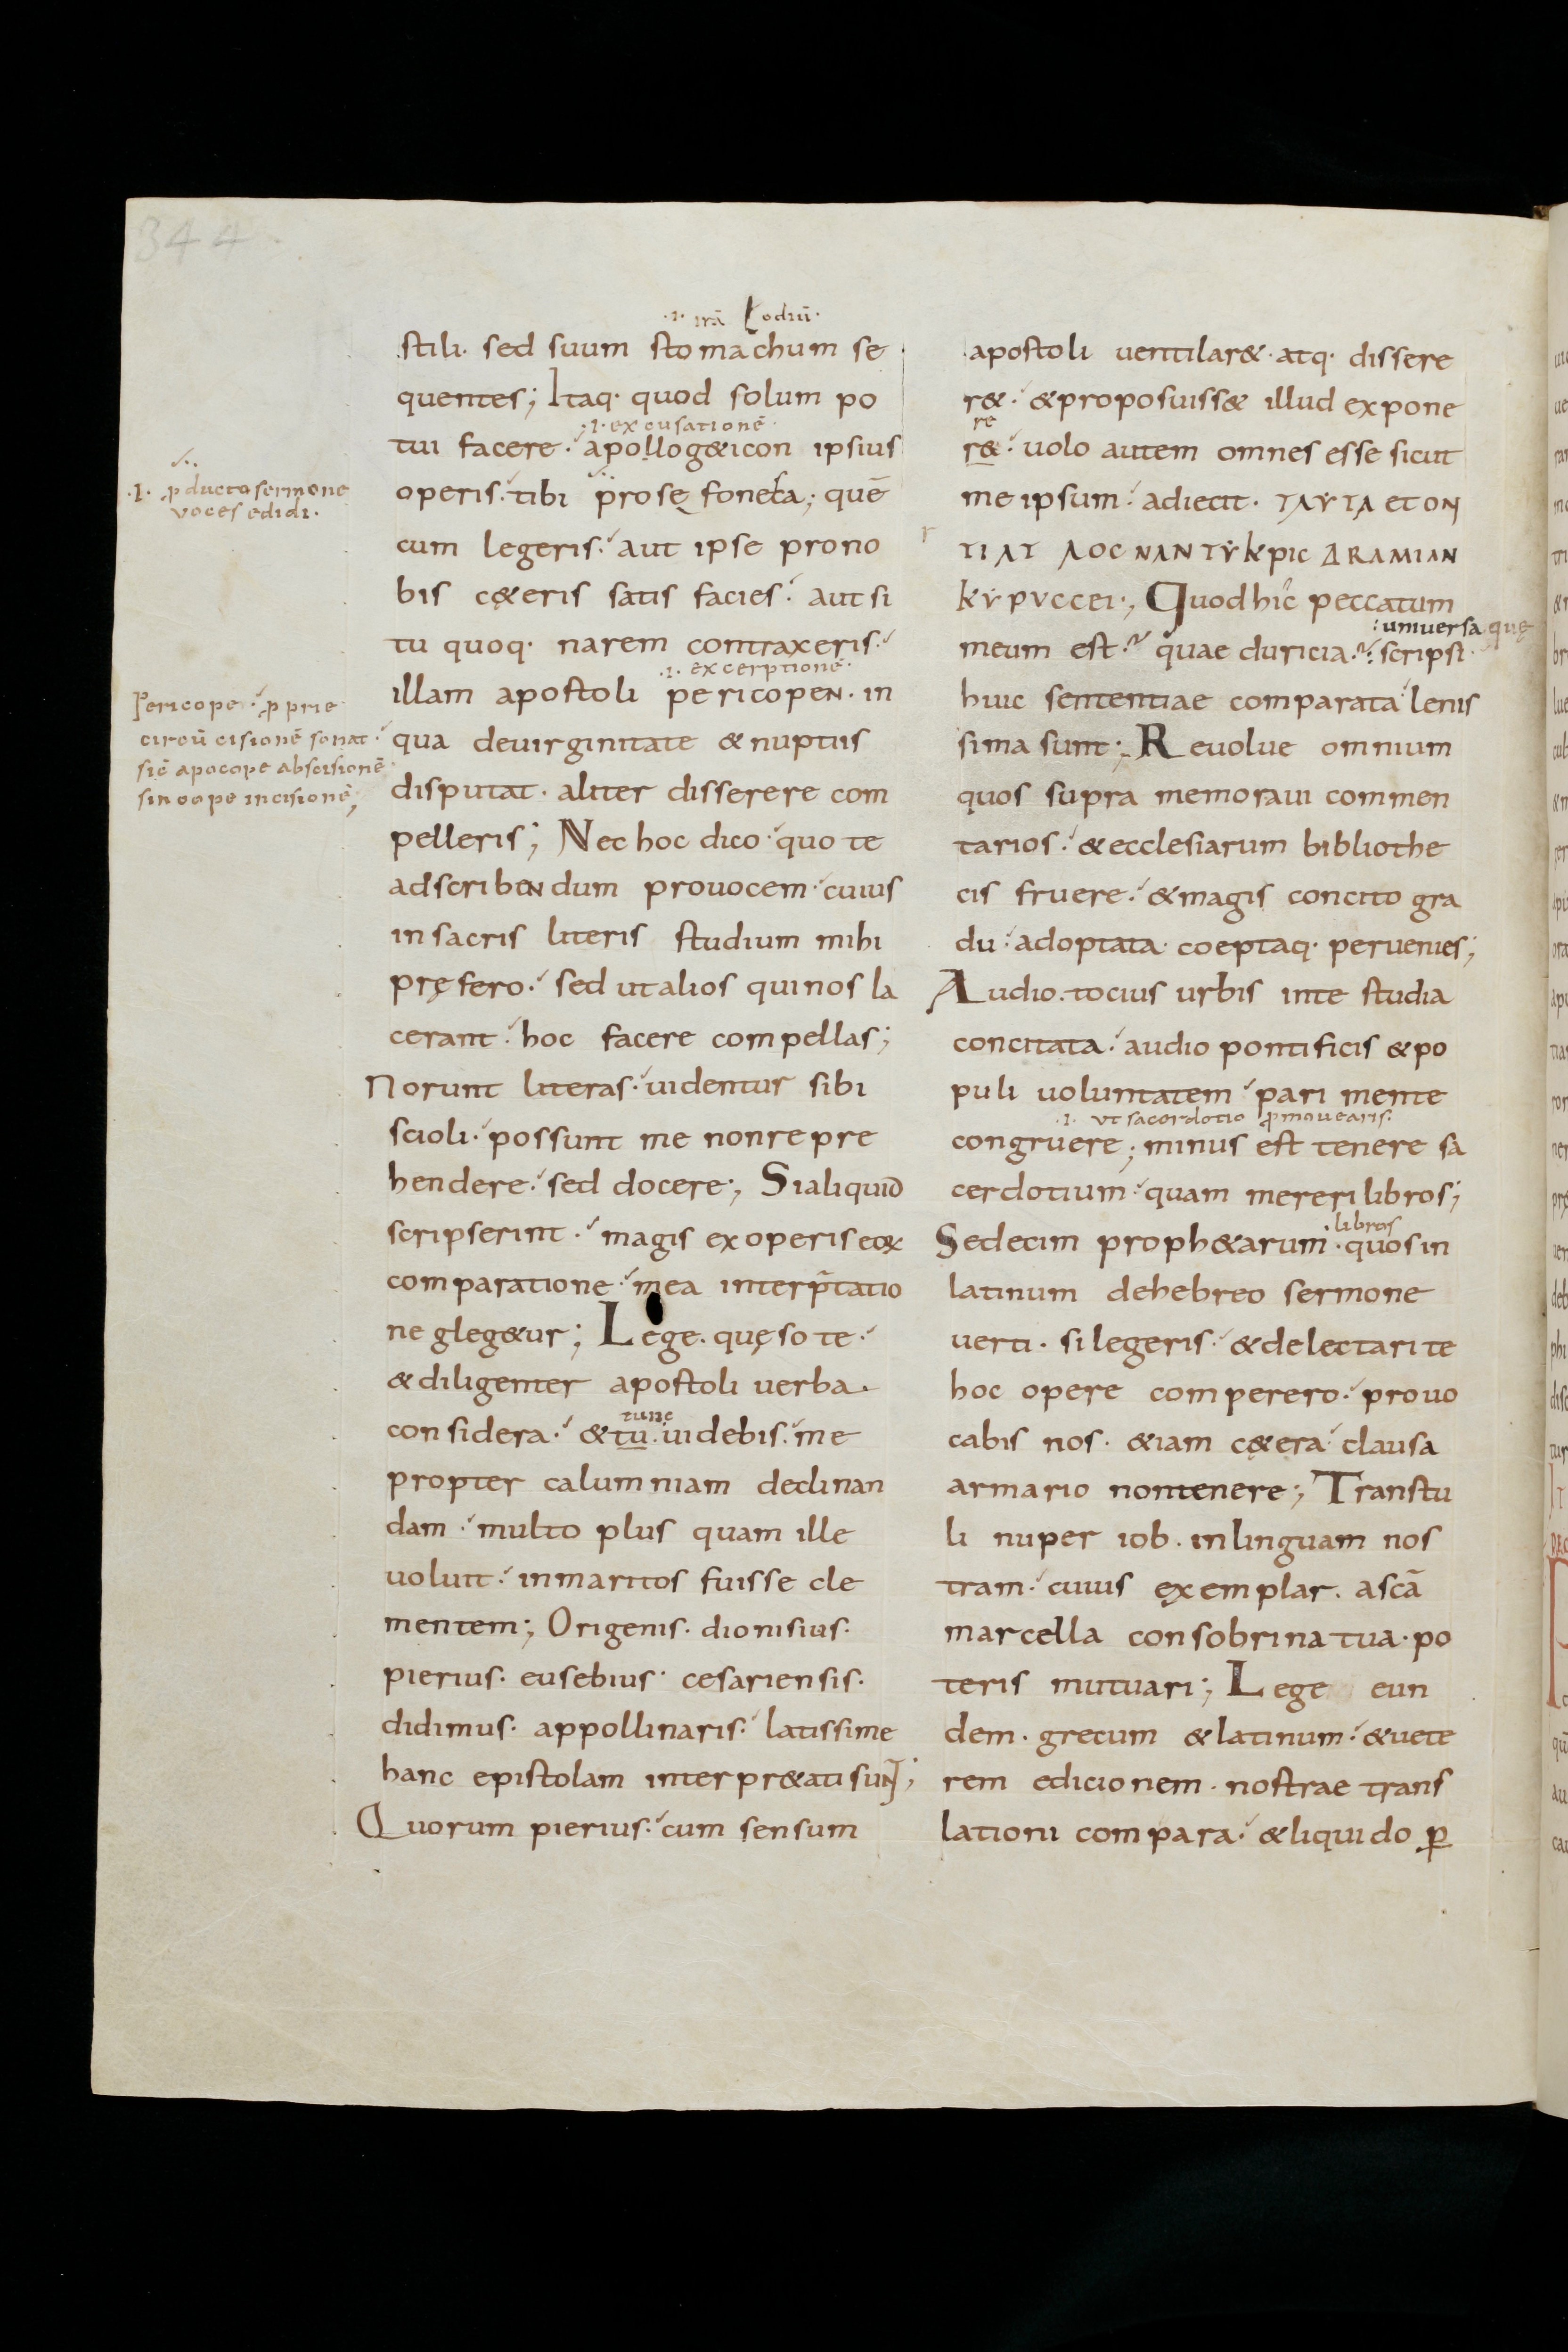 344
.i. irā ł odiū.
stili. sed suum stomachum se
quentes; Itaq. quod solum po
.i. excusationē
tui facere. apollog&icon ipsius
operis. tibi prosęfoneca; quē
cum legeris. aut ipse prono
bis cęeris satis facies. aut si
tu quoq. narem contraxeris.
.i. excerptionē.
illam apostoli pericopen. in
qua de uirginitate & nuptiis
disputat. aliter disserere com
pelleris; Nec hoc dico. quo te
ad scribendum prouocem. cuius
in sacris literis studium mihi
pręfero. sed ut alios qui nos la
cerant. hoc facere compellas;
Norunt literas. uidentur sibi
scioli. possunt me non repre
hendere. sed docere; Si aliquid
scripserint. magis ex operis eox
comparatione. mea interp̄tatio
negleg&ur; Lege. quęso te.
& diligenter apostoli uerba.
tunc
considera. & tu. uidebis. me
propter calumniam declinan
dam. multo plus quam ille
uoluit. in maritos fuisse cle
mentem; Origenis. dionisius.
pierius. eusebius. cesariensis.
didimus. appollinaris. latissime
hanc epistolam interpr&ati sunt;
Quorum pierius. cum sensum
.i. ꝓducto sermone
voces edidi.
Pericope. ꝓprie
circū cisionē sonat.
sic̄ apocope abscisionē
sincope incisionē;
apostoli uentilar&. atq. dissere
r&. & proposuiss& illud expone
re
r&. uolo autem omnes esse sicut
me ipsum. adiecit. ΤΛΥΤΛ ΕΤΟΝ
r
ΤΙΛΤ ΛΟC ΝΛΝΤΥΚΡΙC ΔRΑΜΙΑΝ
ΚΥΡΥCCΕΙ; Quod hic peccatum
: uniuersa quę
meum est. quae duricia. scripsi.
huic sententiae comparata lenis
sima sunt; Reuolue omnium
quos supra memoraui commen
tarios. & ecclesiarum bibliothe
cis fruere. & magis concito gra
du. ad optata coeptaq. peruenies;
Audio. tocius urbis in te studia
concitata. audio pontificis & po
puli uoluntatem pari mente
.i. ut sacerdotio ꝓmouearis.
congruere; minus est tenere sa
cerdotium. quam mereri libros;
libros
Sedecim proph&arum. quos in
latinum de hebreo sermone
uerti. si legeris. & delectari te
hoc opere comperero. prouo
cabis nos. &iam cęera clausa
armario non tenere; Transtu
li nuper iob. in linguam nos
tram. cuius exemplar. a scā
marcella consobrina tua. po
teris mutuari; Lege eun
dem. grecum & latinum. & uete
rem edicionem. nostrae trans
lationi compara. & liquido ꝑ